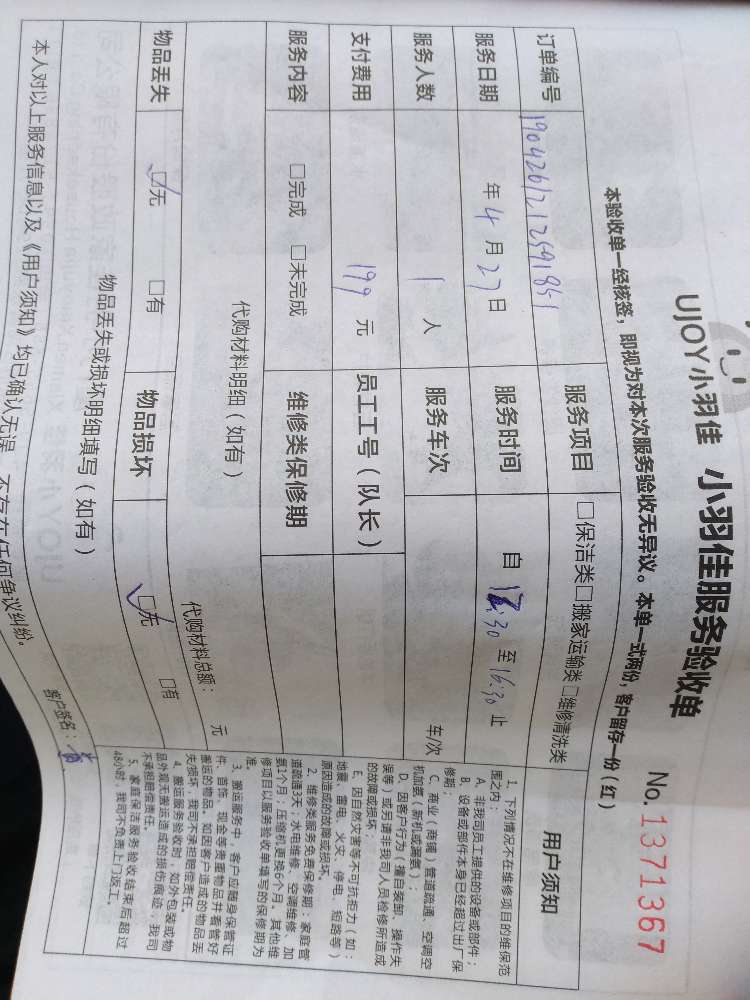 UJOY小羽佳 小羽佳服务验收单
No.1371367
本验收单一经核签，即视为对本次服务验收无异议。本单一式两份，客户留存一份（红）
订单编号
服务项目 □保洁类□搬家运输类□维修清洗类
服务日期 年 4 月 27 日 服务时间 自 至 16:30 止
服务人数 1 人 服务车次 车/次
支付费用 199 元 员工工号（队长）
服务内容 □完成 □未完成 维修类保修期
代购材料明细（如有）
代购材料总额： 元
物品丢失 □无 □有 物品损坏 □无 □有
物品丢失或损坏明细填写（如有）
本人对以上服务信息以及《用户须知》均已确认无误，不存在任何争议纠纷。
客户签名：
用户须知
1、下列情况不在维修项目的维保范
围之内：
A、非我司员工提供的设备或部件；
B、设备或部件本身已经超过出厂保
修期；
C、商业（商铺）管道疏通、空调空
机加氨（新机或漏氨）；
D、因客户行为（擅自装卸、操作失
误等）或另请非我司人员检修所造成
的故障或损坏；
E、因自然灾害等不可抗拒力（如：
地震、雷电、火灾、停电、短路等）
原因造成的故障或损坏。
2、维修类服务免费保修期：家庭管
道疏通3天；水电维修、空调维修、加
氨1个月；压缩机更换6个月。其他维
修项目以服务验收单填写的保修期为
准。
3、搬运服务中，客户应随身保管证
件、首饰、现金等贵重物品并看管好
搬运的物品。如因客户造成的物品丢
失损坏，我司不承担赔偿责任。
4、搬运服务验收时，如外包装或物
品外观无搬运造成的损伤痕迹，我司
不承担赔偿责任。
5、家庭保洁服务验收结束后超过
48小时，我司不负责上门返工。